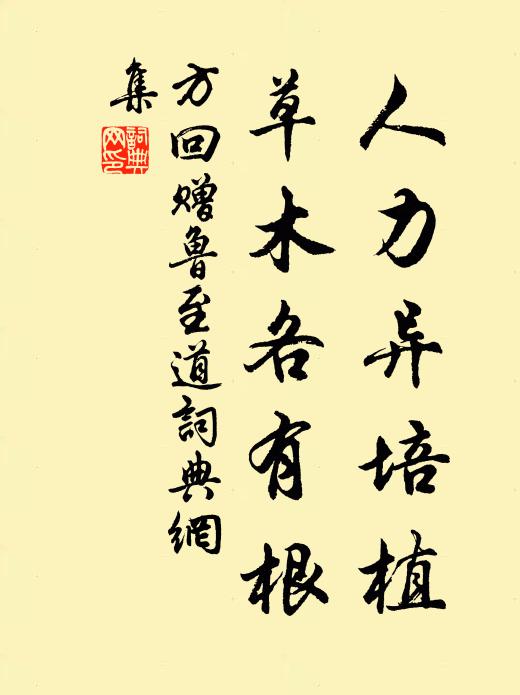 人力异培植
草木各有根
方回赠鲁至道詞典網
集
詞典网印